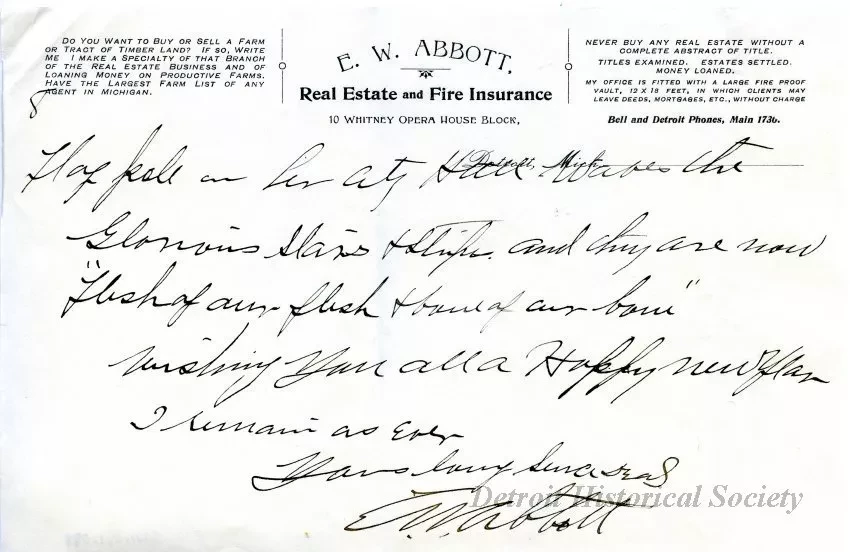 DO YOU WANT TO BUY OR SELL A FARM
OR TRACT OF TIMBER LAND? IF SO, WRITE
ME I MAKE A SPECIALTY OF THAT BRANCH
OF THE REAL ESTATE BUSINESS AND OF
LOANING MONEY ON PRODUCTIVE FARMS.
HAVE THE LARGEST FARM LIST OF ANY
AGENT IN MICHIGAN.
8
E. W. ABBOTT,
Real Estate and Fire Insurance
10 WHITNEY OPERA HOUSE BLOCK,
NEVER BUY ANY REAL ESTATE WITHOUT A
COMPLETE ABSTRACT OF TITLE.
TITLES EXAMINED. ESTATES SETTLED.
MONEY LOANED.
MY OFFICE IS FITTED WITH A LARGE FIRE PROOF
VAULT, 12 X 18 FEET, IN WHICH CLIENTS MAY
LEAVE DEEDS, MORTGAGES, ETC., WITHOUT CHARGE
Bell and Detroit Phones, Main 1736.
Detroit, Mich.
Flag pole on her City Hall Waves the
Glorious Stars & Stripes. and they are now
"Flesh of our flesh & bone of our bone"
Wishing You all a Happy new Year
I remain as Ever
Yours
E. W. Abbott
Detroit Historical Society